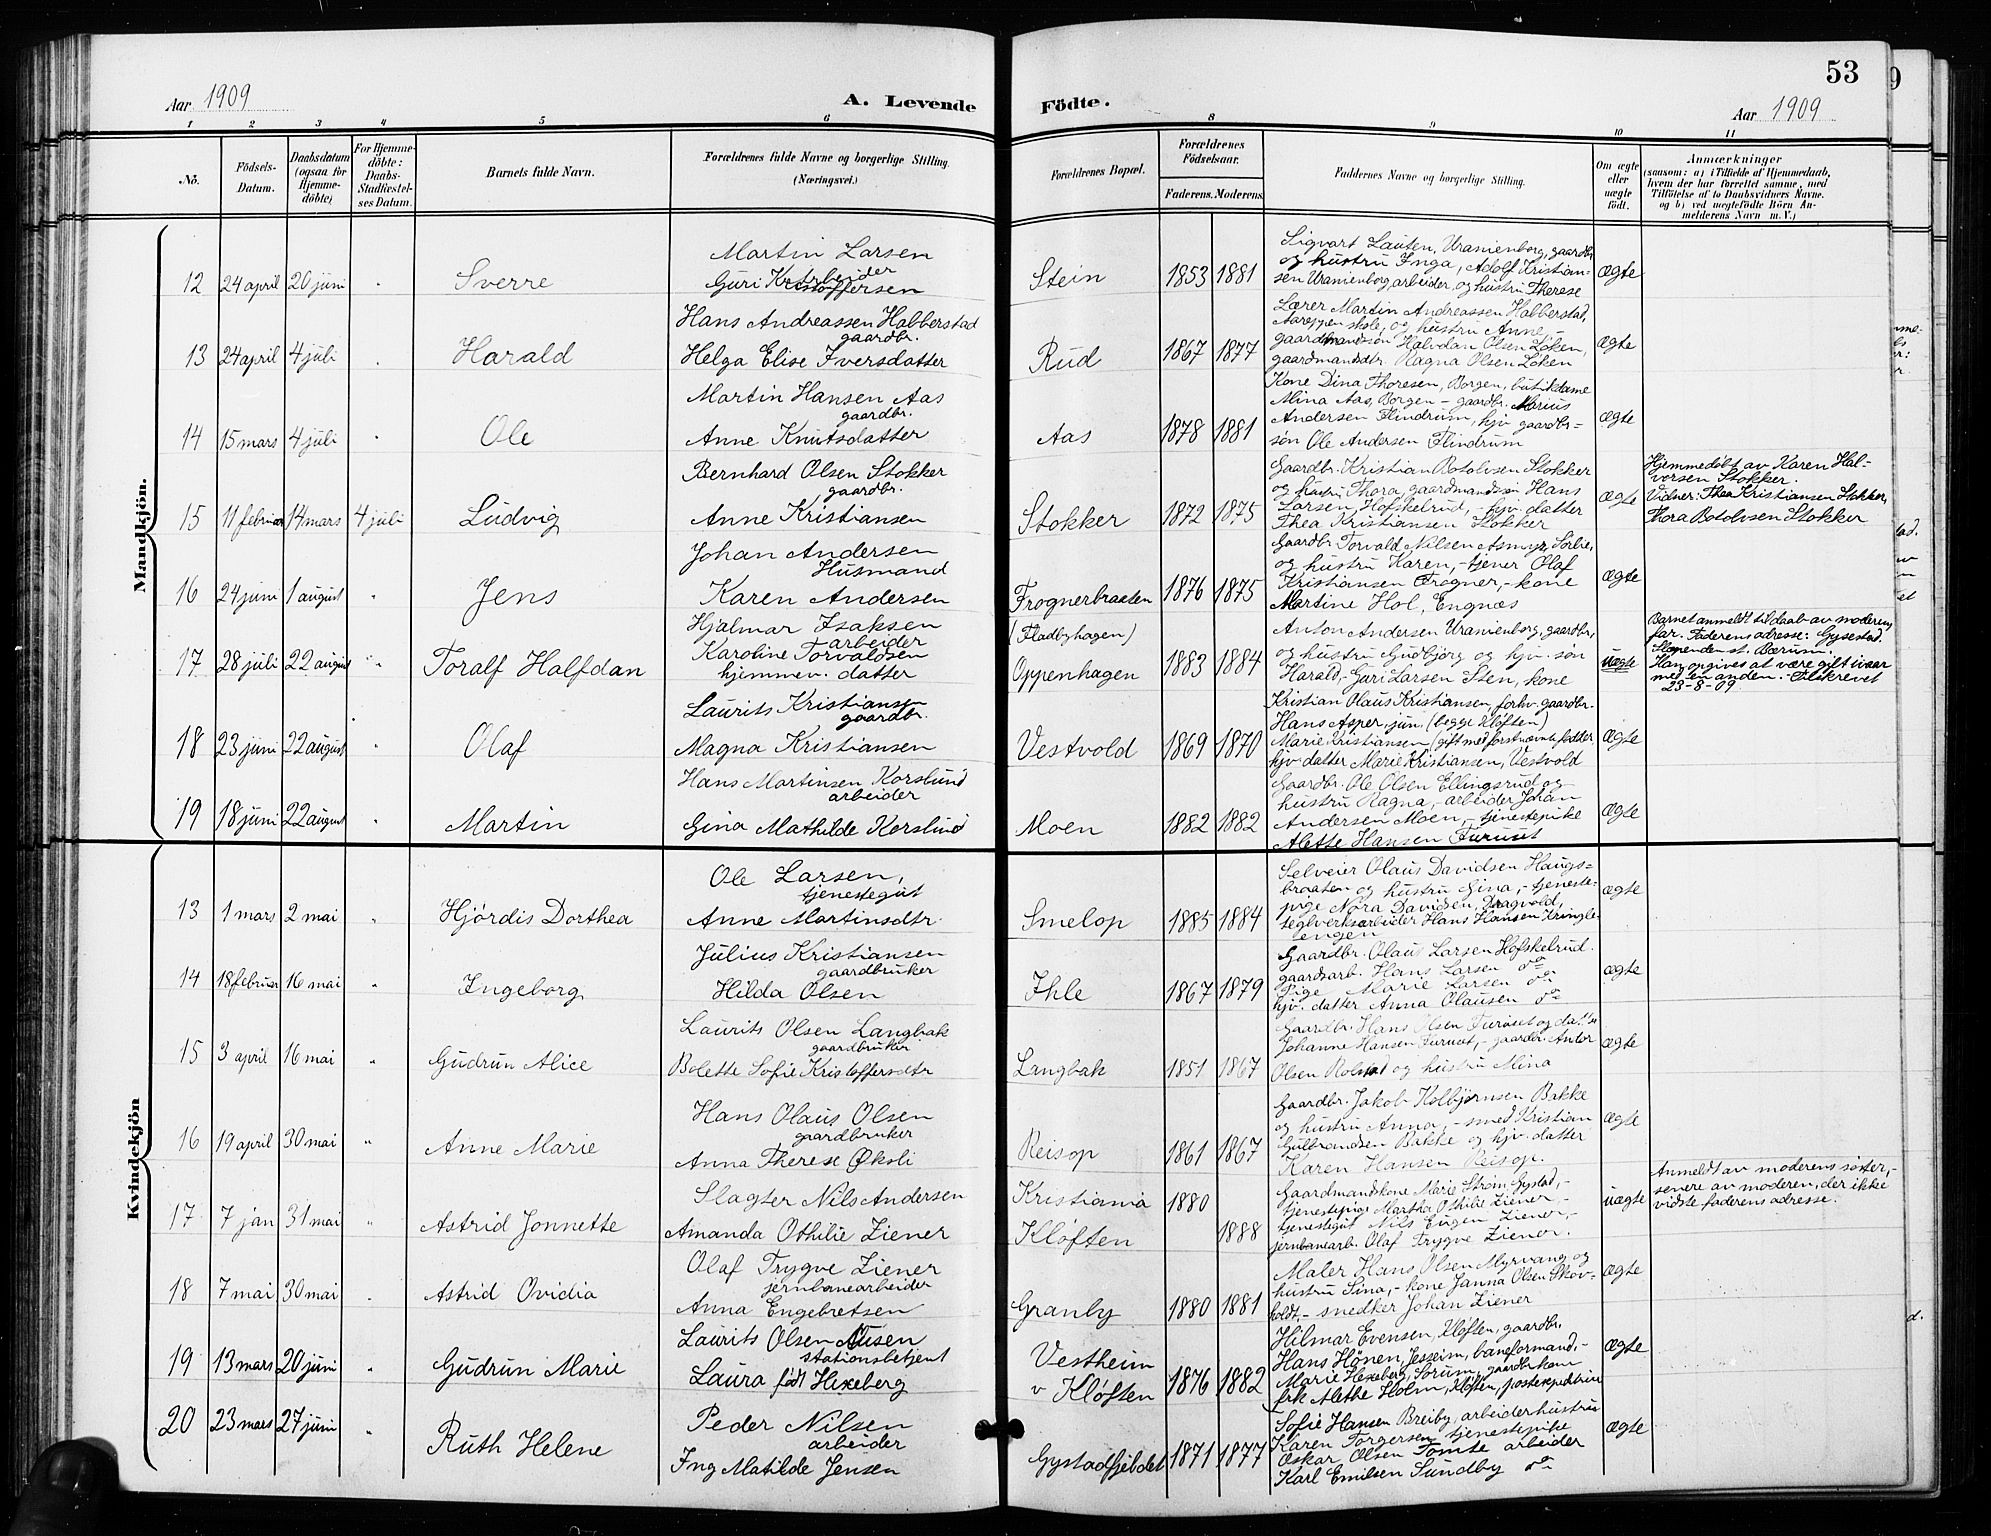 53
Aar 1909
A. Levende Födte.
Aar 1909
1 2 3 4 5 6 8 9 10 11
No.
Födsels-
Datum.
Daabsdatum
(ogsaa for
Hjemme-
döbte)
For Hjemme-
döbte:
Daabs-
Stadfæstel-
ses Datum.
Barnets fulde Navn.
Forældrenes fulde Navne og borgerlige Stilling.
(Næringsvei.)
Forældrenes Bopæl.
Forældrenes
Födselsaar.
Faderens. Moderens.
Faddernes Navne og borgerlige Stilling.
Om ægte
eller
uægte
födt.
Anmærkninger
(saasom: a) i Tilfælde af Hjemmedaab,
hvem der har forrettet samme, med
Tilföielse af to Daabsvidners Navne.
og b) ved uægtefödte Börn An-
melderens Navn m. V.)
Mandkjön.
12 24 april 20 juni " Sverre
Martin Larsen
arbeider
Guri Kristoffersen
Stein 1853 1881
Sigvart Lauten, Uranienborg, gaardbr.
og hustru Inga, Adolf Kristian-
sen Uranienborg, arbeider, og hustru Therese
ægte
13 24 april 4 juli " Harald
Hans Andreassen Habberstad
gaardbr.
Helga Elise Iversdatter
Rud 1867 1877
Lærer Martin Andreassen Habberstad,
skole, og hustru Anne,-
gaardmandsøn Halvdan Olsen Löken,
gaardmandsdtr. Ragna Olsen Löken
ægte
14 15 mars 4 juli " Ole
Martin Hansen Aas
gaardbr.
Anne Knutsdatter
Aas 1878 1881
Kone Dina Thoresen, Borgen, butikdame
Mina Aas, Borgen - gaardbr. Marius
Andersen Flindrum, hjv gaardbr=
søn Ole Andersen Flindrum
ægte
15 11 februar 14 mars 4 juli Ludvig
Bernhard Olsen Stokker
gaardbr.
Anne Kristiansen
Stokker 1872 1875
Gaardbr. Kristian Botolvsen Stokker
og hustru Thora, gaardmandssøn Hans
Larsen, Hofskelrud, - hjv. datter
Thea Kristiansen Stokker
ægte
Hjemmedøbt av Karen Hal=
vorsen Stokker.
Vidner: Thea Kristiansen Stokker,
Thora Botolvsen Stokker
16 24 juni 1 august " Jens
Johan Andersen
Husmand
Karen Andersen
Frognerbraaten
(Fladbyhagen)
1876 1875
Gaardbr. Torvald Nilsen Asmyr, Sörbre,
og hustru Karen, - tjener Olaf
Kristiansen Frogner, - kone
Martine Hol, Engnæs
ægte
17 28 juli 22 august " Toralf Halfdan
Hjalmar Isaksen
arbeider
Karoline Torvaldsen
hjemmev. datter
Oppenhagen 1883 1884
Anton Andersen Uranienborg, gaardbr,
og hustru Gudbjørg og hjv. søn
Harald, - Guri Larsen Sten, kone
uægte
Barnet anmeldt til daab av moderens
far. Faderens adresse: Gysestad.
Slependen st. Bærum.
Han opgives at være gift i vaar
med en anden. - Tilskrevet
23-8-09
18 23 juni 22 august " Olaf
Laurits Kristiansen
gaardbr.
Magna Kristiansen
Vestvold 1869 1870
Kristian Olaus Kristiansen, forhv. gaardbr.
Hans Asper, jun. (begge Kløften)
Marie Kristiansen (gift med førstnævnte fadder,
hjv. datter Marie Kristiansen, Vestvold
ægte
19 18 juni 22 august " Martin
Hans Martinsen Korslund
arbeider
Gina Mathilde Korslund
Moen 1882 1882
Gaardbr. Ole Olsen Ellingsrud og
hustru Ragna, - arbeider Johan
Andersen Moen, - tjenestepike
Alette Hansen Furuset
ægte
Kvindekjön
13 1 mars 2 mai " Hjördis Dorthea
Ole Larsen,
tjenestegut
Anne Martinsdtr.
Smelop 1885 1884
Selveier Olaus Davidsen Haugs=
braaten og hustru Gina, - tjeneste-
pige Nora Davidsen, Dragvold,
teglverksarbeider Hans Hansen Kringle-
engen
ægte
14 18 februar 16 mai " Ingeborg
Julius Kristiansen
gaardbruker
Hilda Olsen
Ihle 1867 1879
Gaardbr. Olaus Larsen Hofskelrud.
gaardsarb. Hans Larsen do
Pige Marie Larsen do
hjv. datter Anna Olausen do
ægte
15 3 april 16 mai " Gudrun Alice
Laurits Olsen Langbak
gaardbruker
Bolette Sofie Kristoffersdtr
Langbak 1851 1867
Gaardbr. Hans Olsen Furuset og datter
Johanne Hansen Furuset, - gaardbr. Anton
Olsen Rolstad og hustru Mina
ægte
16 19 april 30 mai " Anne Marie
Hans Olaus Olsen
gaardbruker
Anna Therese Øksli
Reisop 1861 1867
Gaardbr. Jakob Kolbjørnsen Bakke
og hustru Anna, - smed Kristian
Gulbrandsen Bakke og hjv. datter
Karen Hansen Reisop.
ægte
17 7 jan 31 mai " Astrid Jonnette
Slagter Nils Andersen
Amanda Othilie Ziener
Kristiania 1880
Kløften 1888
Gaardmandskone Marie Strøm, Gystad, -
tjenestepige Martha Othilie Ziener, -
tjenestegut Nils Eugen Ziener, -
jernbanearb. Olaf Trygve Ziener.
uægte
Anmeldt av moderens søster, -
senere av moderen, der ikke
vidste faderens adresse.
18 7 mai 30 mai " Astrid Ovidia
Olaf Trygve Ziener
jernbanearbeider
Anna Engebretsen
Granby 1880 1881
Maler Hans Olsen Myrvang og
hustru Sina, - kone Janna Olsen Skov-
holdt, - snedker Johan Ziener
ægte
19 13 mars 20 juni " Gudrun Marie
Laurits Olsen Ausen
stationsbetjent
Laura født Hexeberg
Vestheim
v Kløften
1876 1882
Hilmar Evensen, Kløften, gaardbr,
Hans Hönen, Jessheim, baneformand, -
Marie Hexeberg, Sørum, gaardbr.kone
frk Alethe Holm, Kløften, postexpeditrise
ægte
20 23 mars 27 juni " Ruth Helene
Peder Nilsen
arbeider
Ing Matilde Jensen
Gystadfjeldet 1871 1877
Sofie Hansen Breiby, arbeiderhustru
Karen Torgersen tjenestepike
Oskar Olsen Tomte arbeider
Karl Emilsen Sundby do
ægte